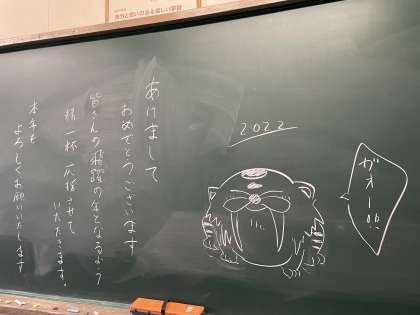 魅力と潤いのある楽しい学校
あけまして
おめでとうございます
皆さんの飛躍の年となるよう
精一杯 応援させて
いただきます。
本年も
よろしくお願いいたします
2022
ガオー!!